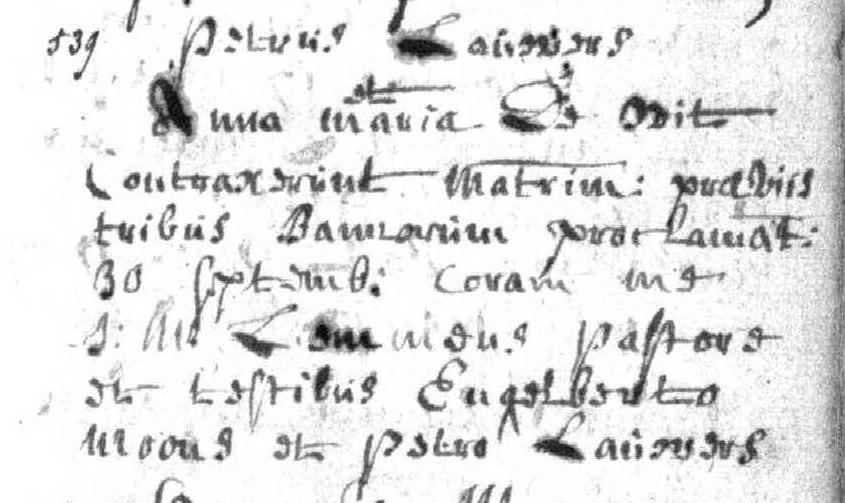 539 Petrus Lauwers
et
Anna maria De Wit
Contraxerunt Matrim: praeviis
tribus Bannorum proclamat:
30 septemb: Coram me
J: Lemmens Pastore
et testibus Engelberto
Moons et petro Lauwers